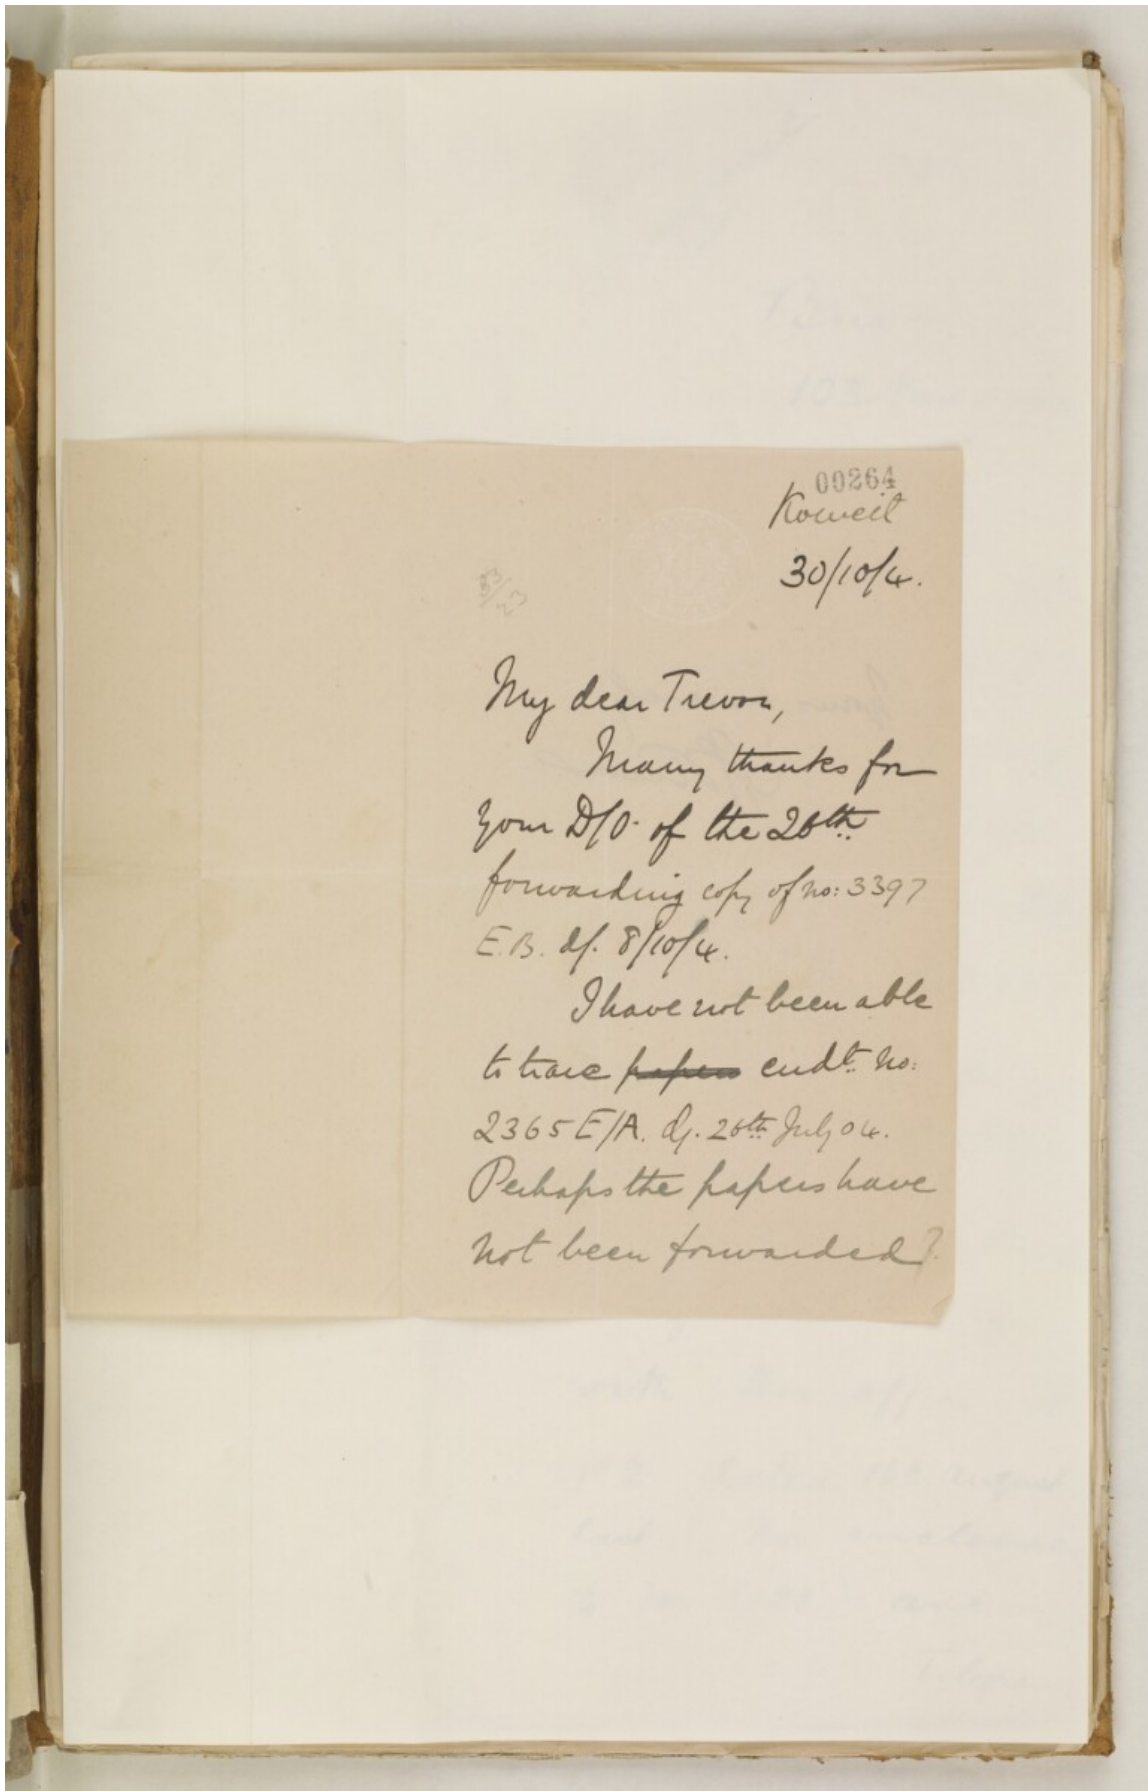 00264
Koweit
30/10/4.
33/23
My dear Trevor,
Many thanks for
your D/O. of the 26th
forwarding copy of no: 3397
E.B. d/. 8/10/4.
I have not been able
to trace papers endt. no:
2365 E/A. d/. 26th July 04.
Perhaps the papers have
not been forwarded?